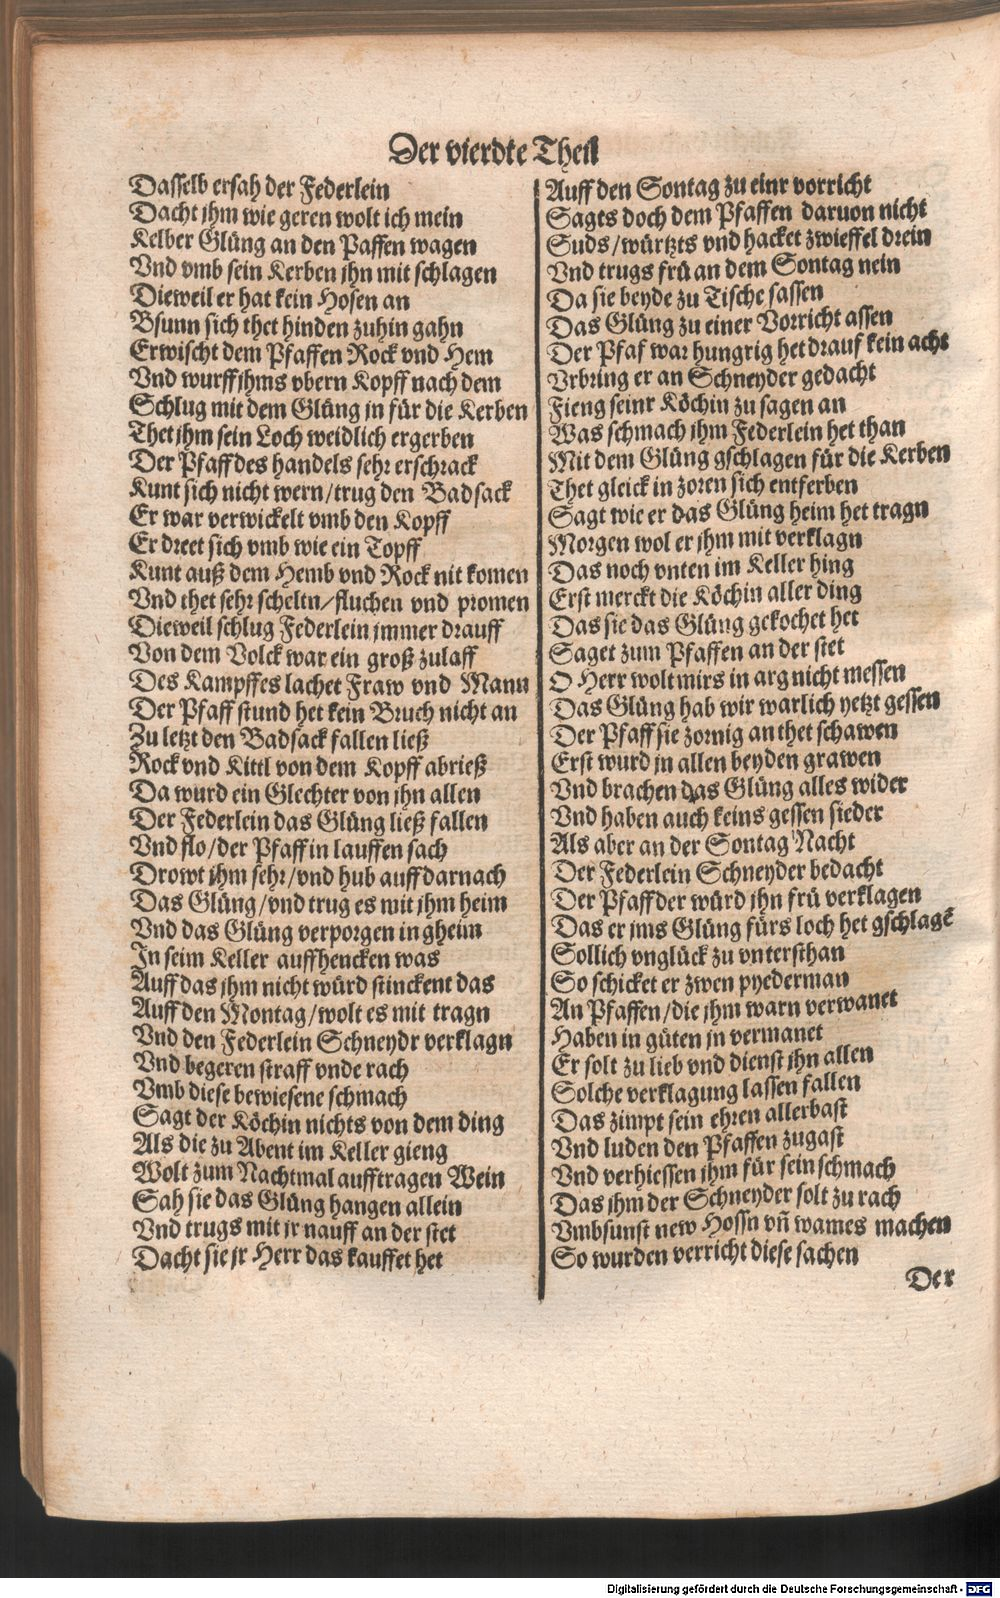 Der vierdte Theil
Dasselb ersah der Federlein
Dacht jhm wie geren wolt ich mein
Kelber Glüng an den Paffen wagen
Vnd vmb sein Kerben jhn mit schlagen
Dieweil er hat kein Hosen an
Bsunn sich thet hinden zuhin gahn
Erwischt dem Pfaffen Rock vnd Hem
Vnd wurff jhms vbern Kopff nach dem
Schlug mit dem Glüng jn für die Kerben
Thet jhm sein Loch weidlich ergerben
Der Pfaff des handels sehr erschrack
Kunt sich nicht wern/trug den Badsack
Er war verwickelt vmb den Kopff
Er dreet sich vmb wie ein Topff
Kunt auß dem Hemb vnd Rock nit komen
Vnd thet sehr scheltn/fluchen vnd promen
Dieweil schlug Federlein jmmer drauff
Von dem Volck war ein groß zulaff
Des Kampffes lachet Fraw vnd Mann
Der Pfaff stund het kein Bruch nicht an
Zu letzt den Badsack fallen ließ
Rock vnd Kittl von dem Kopff abrieß
Da wurd ein Glechter von jhn allen
Der Federlein das Glüng ließ fallen
Vnd flo/der Pfaff in lauffen sach
Drowt jhm sehr/vnd hub auff darnach
Das Glüng/vnd trug es mit jhm heim
Vnd das Glüng verporgen in gheim
In seim Keller auffhencken was
Auff das jhm nicht würd stinckent das
Auff den Montag/wolt es mit tragn
Vnd den Federlein Schneydr verklagn
Vnd begeren straff vnde rach
Vmb diese bewiesene schmach
Sagt der Köchin nichts von dem ding
Als die zu Abent im Keller gieng
Wolt zum Nachtmal aufftragen Wein
Sah sie das Glüng hangen allein
Vnd trugs mit jr nauff an der stet
Dacht sie jr Herr das kauffet het
Auff den Sontag zu einr vorricht
Sagts doch dem Pfaffen daruon nicht
Suds/würtzts vnd hacket zwieffel drein
Vnd trugs frü an dem Sontag nein
Da sie beyde zu Tische sassen
Das Glüng zu einer Vorricht assen
Der Pfaf war hungrig het drauf kein acht
Vrbring er an Schneyder gedacht
Fieng seinr Köchin zu sagen an
Was schmach jhm Federlein het than
Mit dem Glüng gschlagen für die Kerben
Thet gleick in zoren sich entferben
Sagt wie er das Glüng heim het tragn
Morgen wol er jhm mit verklagn
Das noch vnten im Keller hing
Erst merckt die Köchin aller ding
Das sie das Glüng gekochet het
Saget zum Pfaffen an der stet
O Herr wolt mirs in arg nicht messen
Das Glüng hab wir warlich yetzt gessen
Der Pfaff sie zornig an thet schawen
Erst wurd jn allen beyden grawen
Vnd brachen das Glüng alles wider
Vnd haben auch keins gessen sieder
Als aber an der Sontag Nacht
Der Federlein Schneyder bedacht
Der Pfaff der würd jhn frü verklagen
Das er jms Glüng fürs loch het gschlagē
Sollich vnglück zu vntersthan
So schicket er zwen pyederman
An Pfaffen/die jhm warn verwanet
Haben in güten jn vermanet
Er solt zu lieb vnd dienst jhn allen
Solche verklagung lassen fallen
Das zimpt sein ehren allerbast
Vnd luden den Pfaffen zugast
Vnd verhiessen jhm für sein schmach
Das jhm der Schneyder solt zu rach
Vmbsunst new Hossn vn̄ wames machen
So wurden verricht diese sachen
Der
Digitalisierung gefördert durch die Deutsche Forschungsgemeinschaft - DFG